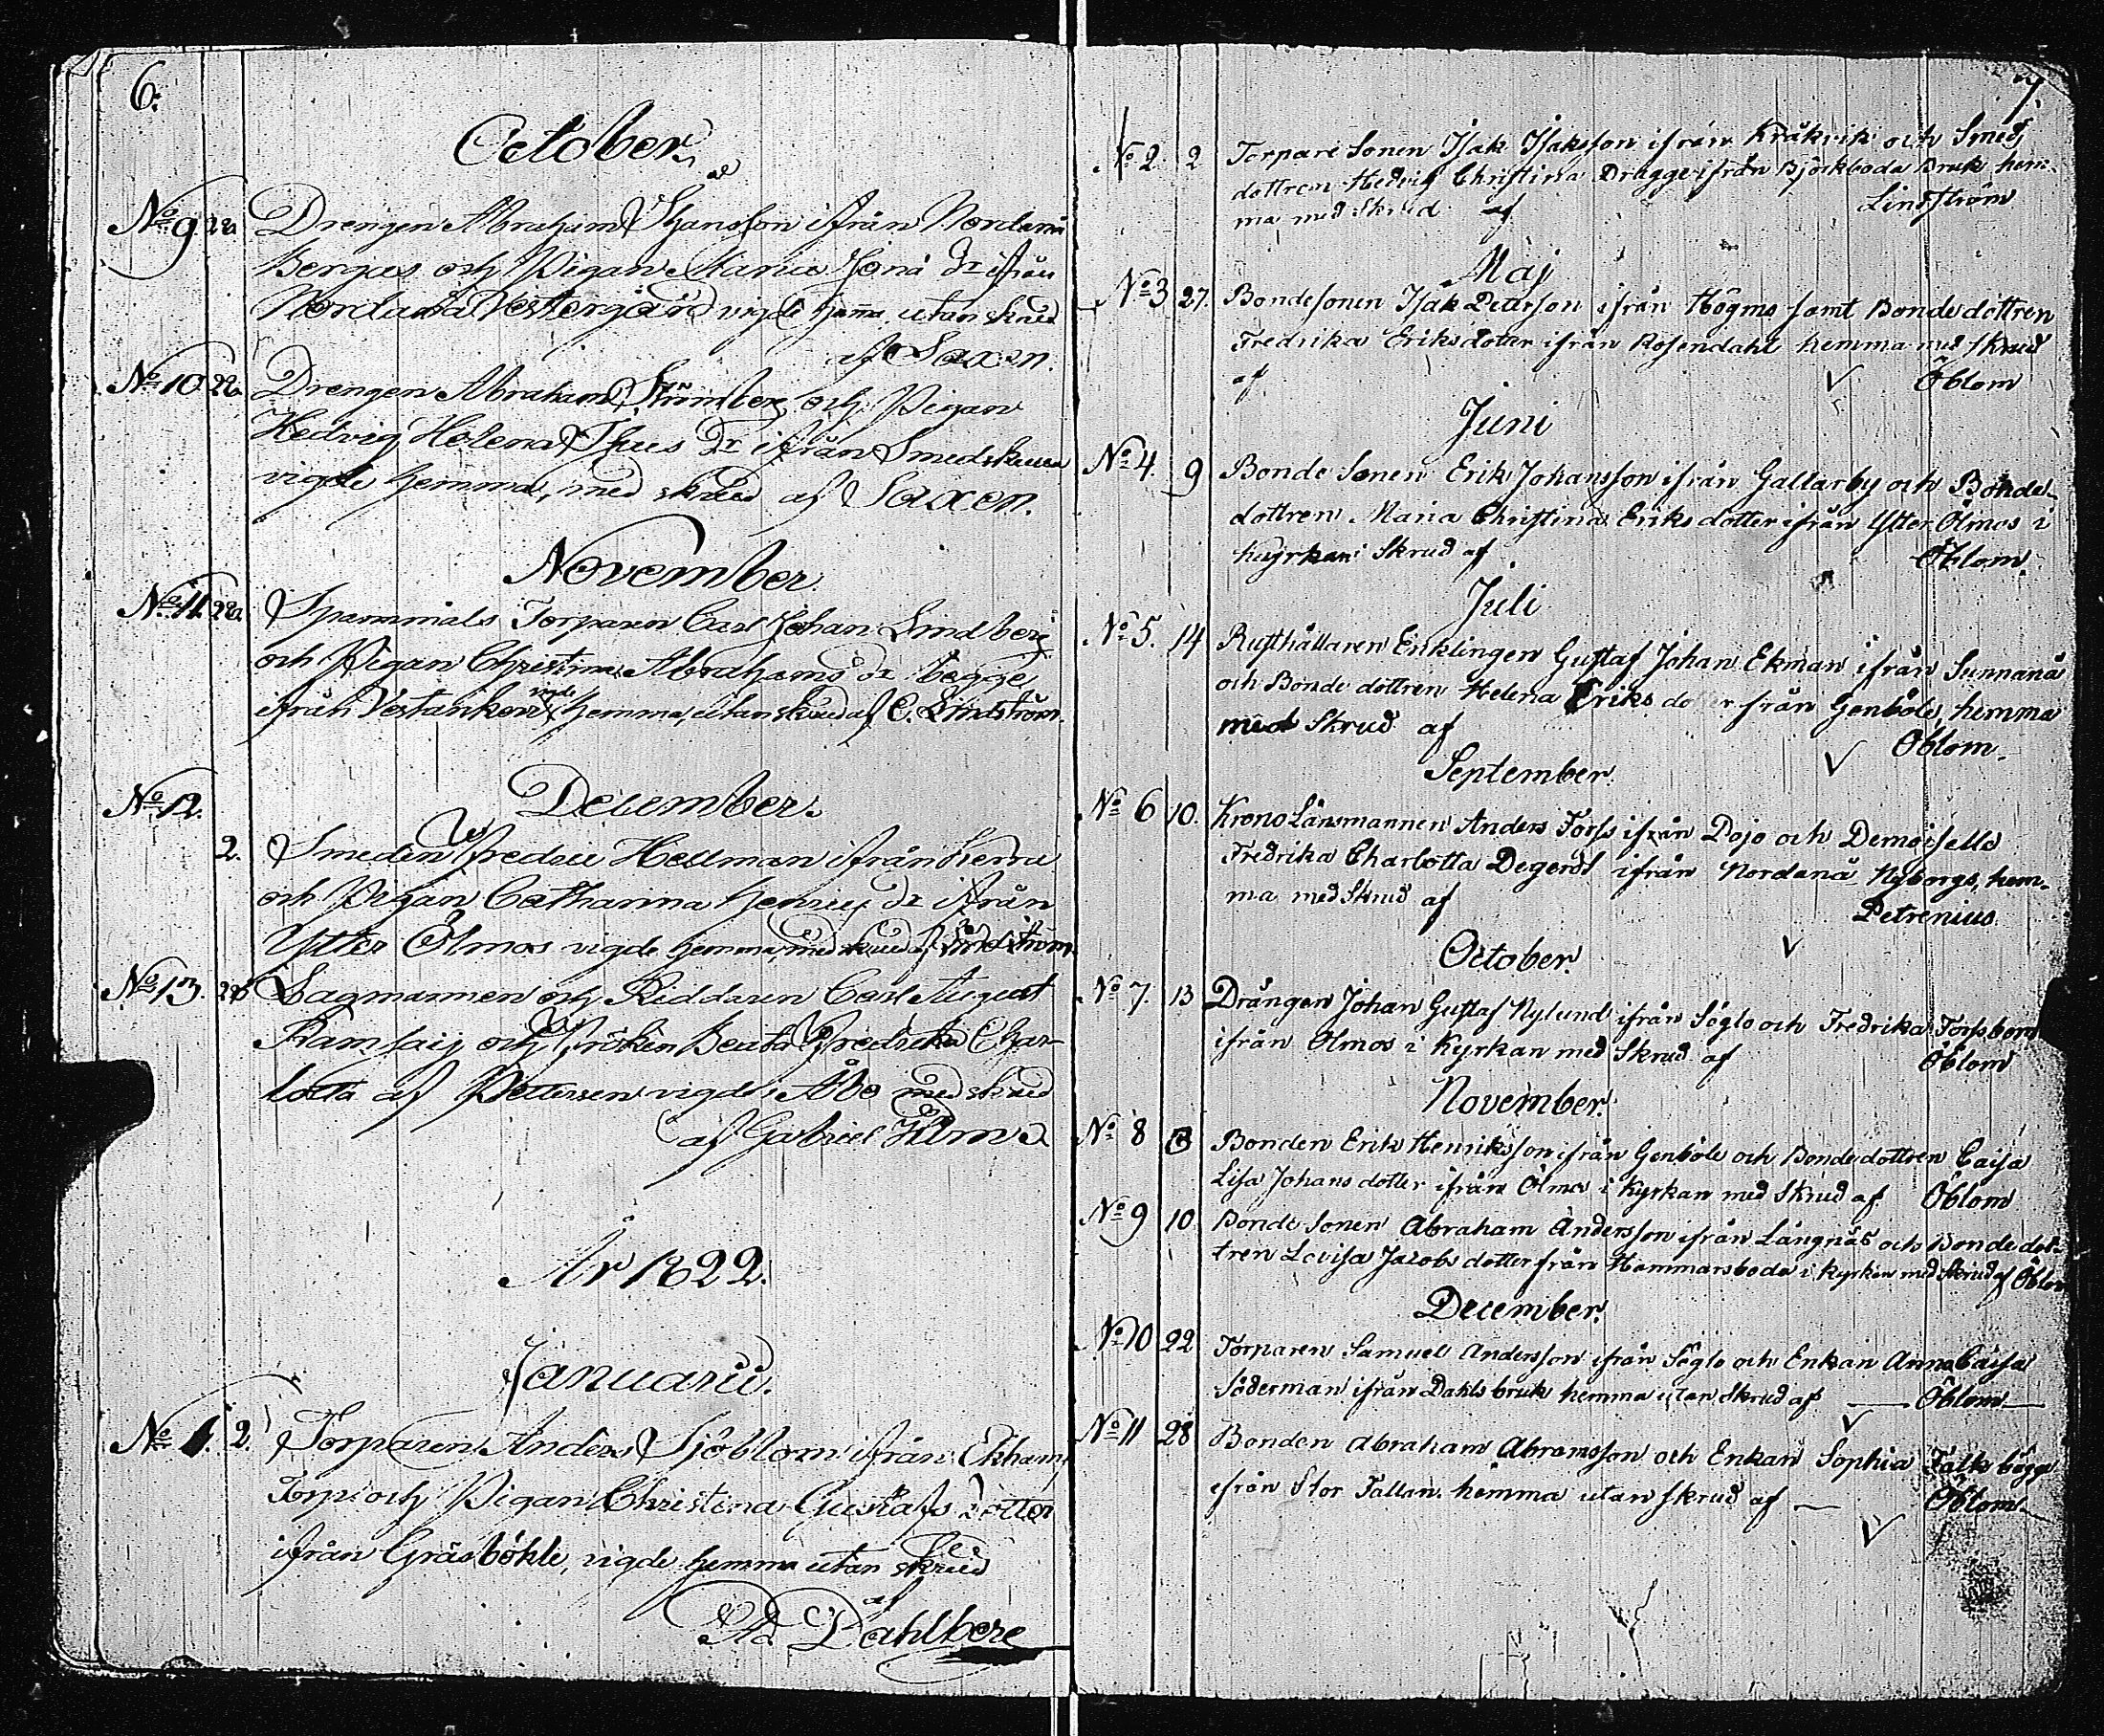 6.
October.
No 9 Drengen Abraham Johansson ifrån Nordanå
Bergas och Pigan Maria Jona dr ifrån
Nordanå Westergård vigde hemma, utan skrud
af Saxen.
No 10 22. Drengen Abraham Strömberg och Pigan
Hedvig Helena Thus dr ifrån Smedskulla
vigde hemma, med skrud af Saxen.
November.
No 11. Spannmåls Torparen Carl Johan Lindberg
och Pigan Christina Abrahams dr begge
ifrån Vestanken vigde hemma, utan skrud af C. Lindström.
No 12.
December.
2. Smeden Fredric Hellman ifrån Kerra
och Pigan Catharina Henrics dr ifrån
Ytter Ölmos vigde hemma, med skrud af Lindström.
No 13. Lagmannen och Riddaren Carl August
Ramsaij och Fröken Beata Fredrika Char-
lotta af Pettersen vigde i Åbo med skrud
af Gabriel
År 1822.
Januarii.
No 1. 2. Torparen Anders Sjöblom ifrån Ekhamn
Torp och Pigan Christina Gustafs dotter
ifrån Gräsböhle, vigde hemma utan skrud
af
Dahlberg
7.
No 2. 2 Torpare Sonen Isak Isaksson ifrån Kråkvik och Smeds
dottren Hedvig Christina Dragge ifrån Björkboda Bruk hem-
ma med Skrud af Lindström
Maj
No 3 27. Bondesonen Isak Pearson ifrån Högmo samt Bondedottren
Fredrika Eriksdotter ifrån Rosendahl hemma med Skrud
af Öblom
Juni
No 4. 9 Bonde Sonen Erik Johansson ifrån Gallarby och Bonde-
dottren Maria Christina Eriks dotter ifrån Ytter Ölmos i
kyrkan i Skrud af Öblom.
Juli
No 5. 14 Rusthållaren Enklingen Gustaf Johan Ekman ifrån Sunnanå
och Bonde dottren Helena Eriks dotter från Genböle, hemma
med Skrud af Öblom.
September.
No 6 10. Krono Länsmannen Anders Forss ifrån Pojo och Demoiselle
Fredrika Charlotta Degerdt ifrån Nordanå Nyborgs, hem-
ma med Skrud af Petrenius
October.
No 7. 13 Drängen Johan Gustaf Nylund ifrån Söglo och Fredrika Forssbom
ifrån Ölmos i Kyrkan med Skrud af Öblom
November.
No 8 Bonden Erik Henriksson ifrån Genböle och Bondedottren Caisa
Lisa Johans dotter ifrån Ölmos i Kyrkan med Skrud af Öblom
No 9 10 Bonde Sonen Abraham Andersson ifrån Långnäs och Bonde dot-
tren Lovisa Jacobs dotter från Hammarsboda i kyrkan med Skrud af Öblom
December.
No 10 22 Torparen Samuel Andersson ifrån Söglo och Enkan Anna Caisa
Söderman ifrån Dahls bruk hemma utan Skrud af — Öblom —
No 11 28 Bonden Abraham Abramsson och Enkan Sophia Falk begge
ifrån Stor Fallan hemma utan skrud af — Öblom —